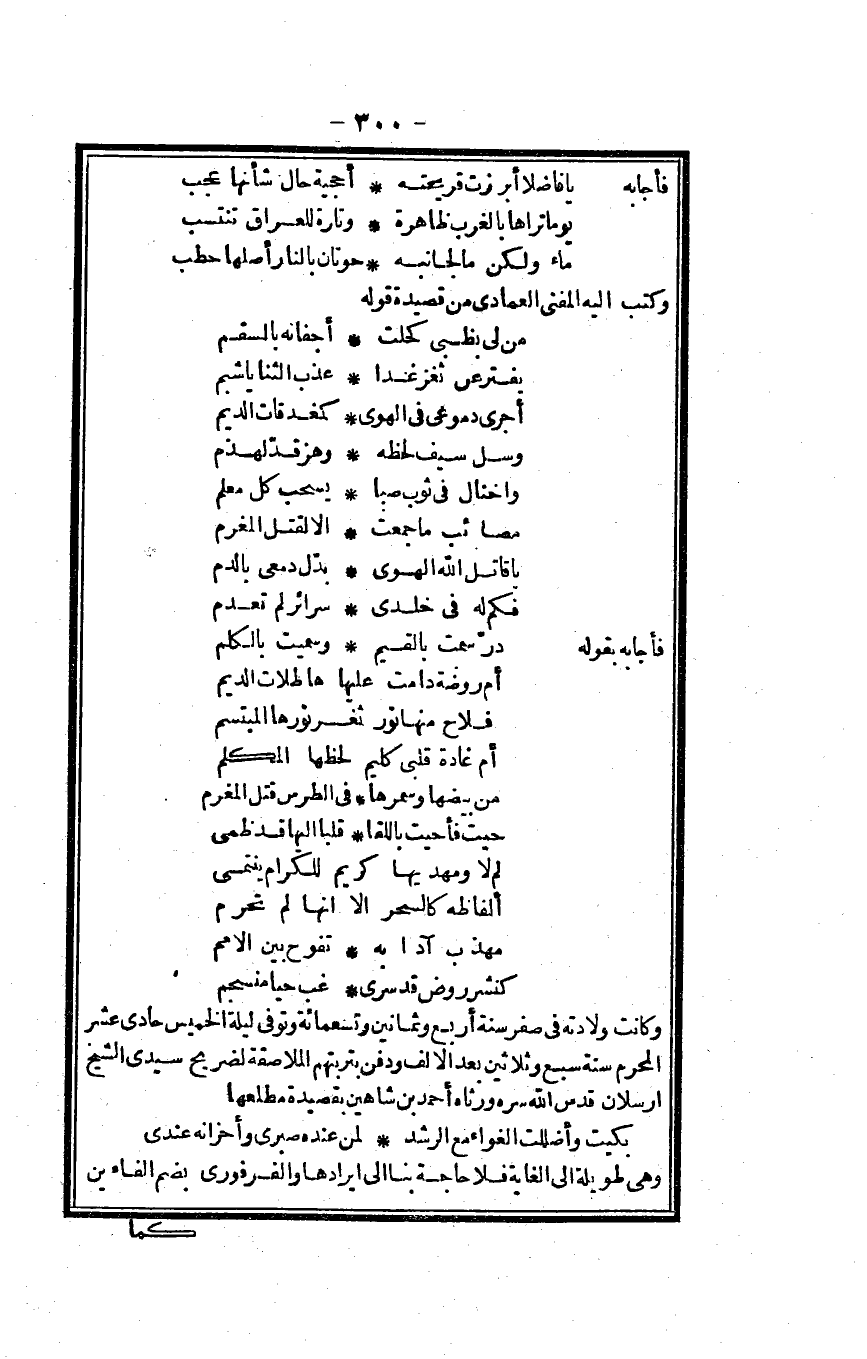 - ٣٠٠ -
فأجابه يا فاضلا أبرزت قريحته * أحجية حال شأنها عجب
يوما تراها بالغرب ظاهرة * وتارة للعراق تنتسب
ماء ولكن مالجانبه * حوتان بالنار أصلها حطب
وكتب اليه المفتى العمادى من قصيدة قوله
من لى بظبى كحلت * أجفانه بالسقم
يفتر عن ثغر غدا * عذب الثنايا شبم
أجرى دموعى فى الهوى * كمغدقات الديم
وسل سيف لحظه * وهز قد لهذم
واختال فى ثوب صبا * يسحب كل معلم
مصائب ما جمعت * الا لقتل المغرم
يا قاتل الله الهوى * بدّل دمعى بالدم
فكم له فى خلدى * سرائر لم تعدم
فأجابه بقوله درّ سمت بالقيم * وسميت بالكلم
أم روضة دامت عليها هاطلات الديم
فلاح منها نور ثغر نورها المبتسم
أم غادة قلبى كليم لحظها المكلم
من بيضها وسمرها * فى الطرس قتل المغرم
حيت فأحيت باللقا * قلبا اليها قد ظمى
لم لا ومهديها كريم للكرام ينتمى
ألفاظه كالسحر الا انها لم تحرم
مهذب آدابه * تفوح بين الامم
كنشر روض قد سرى * غب حيا منسجم
وكانت ولادته فى صفر سنة أربع وثمانين وتسعمائة وتوفى ليلة الخميس حادى عشر
المحرم سنة سبع وثلاثين بعد الالف ودفن بتربتهم الملاصقة لضريح سيدى الشيخ
ارسلان قدس الله سره ورثاه أحمد بن شاهين بقصيدة مطلعها
بكيت وأضللت الغواء مع الرشد * لمن عنده صبرى وأحزانه عندى
وهى طويلة الى الغاية فلا حاجة بنا الى ايرادها والفرفورى بضم الفاءين
كما